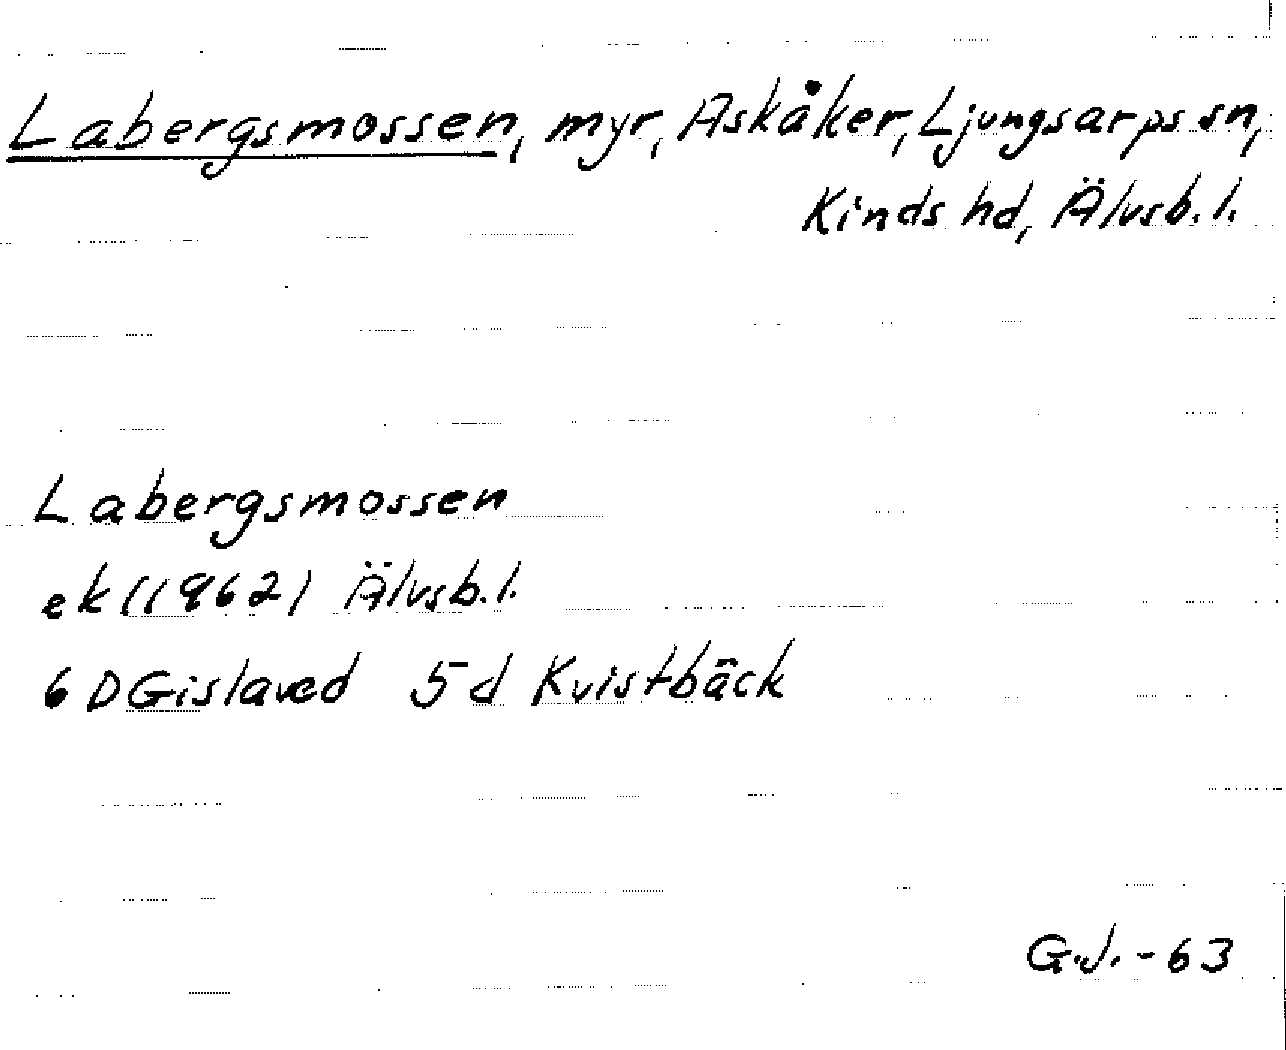 Labergsmossen, myr, Askåker, Ljungsarps sn,
Kinds hd, Älvsb.l.
Labergsmossen
ek (1962) Älvsb.l.
6 D Gislaved 5 d Kvistbäck
G.J. -63